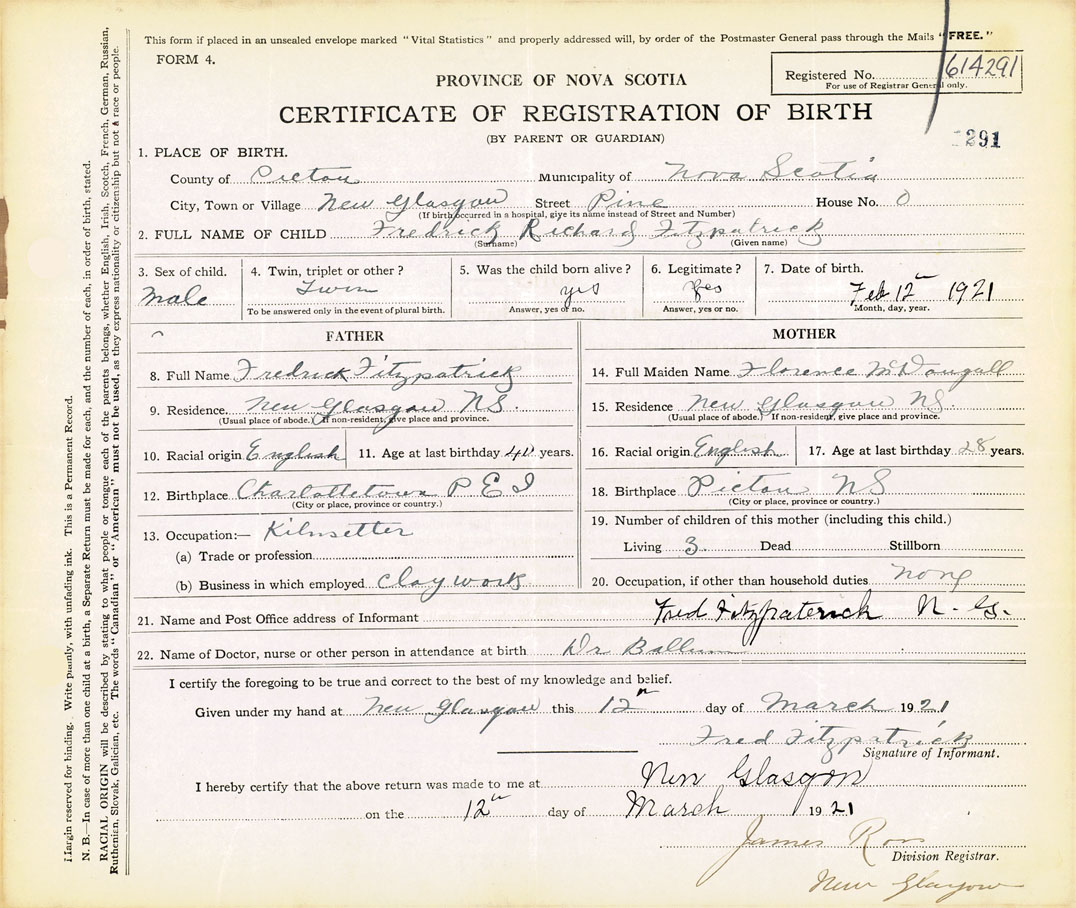 This form if placed in an unsealed envelope marked "Vital Statistics" and properly addressed will, by order of the Postmaster General pass through the Mails "FREE."
FORM 4.
Registered No. 614291
For use of Registrar General only.
PROVINCE OF NOVA SCOTIA
CERTIFICATE OF REGISTRATION OF BIRTH
(BY PARENT OR GUARDIAN)
291
1. PLACE OF BIRTH.
County of Pictou Municipality of Nova Scotia
City, Town or Village New Glasgow Street Pine House No. 0
(If birth occurred in a hospital, give its name instead of Street and Number)
2. FULL NAME OF CHILD Fredrick Richard Fitzpatrick
(Surname) (Given name)
3. Sex of child. 4. Twin, triplet or other? 5. Was the child born alive? 6. Legitimate? 7. Date of birth.
Male Twin yes yes Feb 12th 1921
To be answered only in the event of plural birth. Answer, yes or no. Answer, yes or no. Month, day, year.
FATHER
8. Full Name Fredrick Fitzpatrick
9. Residence New Glasgow NS.
(Usual place of abode.) If non-resident, give place and province.
10. Racial origin English 11. Age at last birthday years.
12. Birthplace Charlottetown P E I
(City or place, province or country.)
13. Occupation:— Kilnsetter
(a) Trade or profession
(b) Business in which employed Clay work
MOTHER
14. Full Maiden Name Florence McDougall
15. Residence New Glasgow NS.
(Usual place of abode.) If non-resident, give place and province.
16. Racial origin English 17. Age at last birthday 28 years.
18. Birthplace Pictou NS
(City or place, province or country.)
19. Number of children of this mother (including this child.)
Living 3 Dead Stillborn
20. Occupation, if other than household duties none
21. Name and Post Office address of Informant Fred Fitzpaterick N. G.
22. Name of Doctor, nurse or other person in attendance at birth Dr
I certify the foregoing to be true and correct to the best of my knowledge and belief.
Given under my hand at New Glasgow this 12th day of March 1921
Fred Fitzpatrick
Signature of Informant.
I hereby certify that the above return was made to me at New Glasgow
on the 12th day of March 1921
James Ross
Division Registrar.
New Glasgow
Margin reserved for binding. Write plainly, with unfading ink. This is a Permanent Record.
N. B.—In case of more than one child at a birth, a Separate Return must be made for each, and the number of each, in order of birth, stated.
RACIAL ORIGIN will be described by stating to what people or tongue each of the parents belongs, whether English, Irish, Scotch, French, German, Russian,
Ruthenian, Slovak, Galician, etc. The words "Canadian" or "American" must not be used, as they express nationality or citizenship but not a race or people.